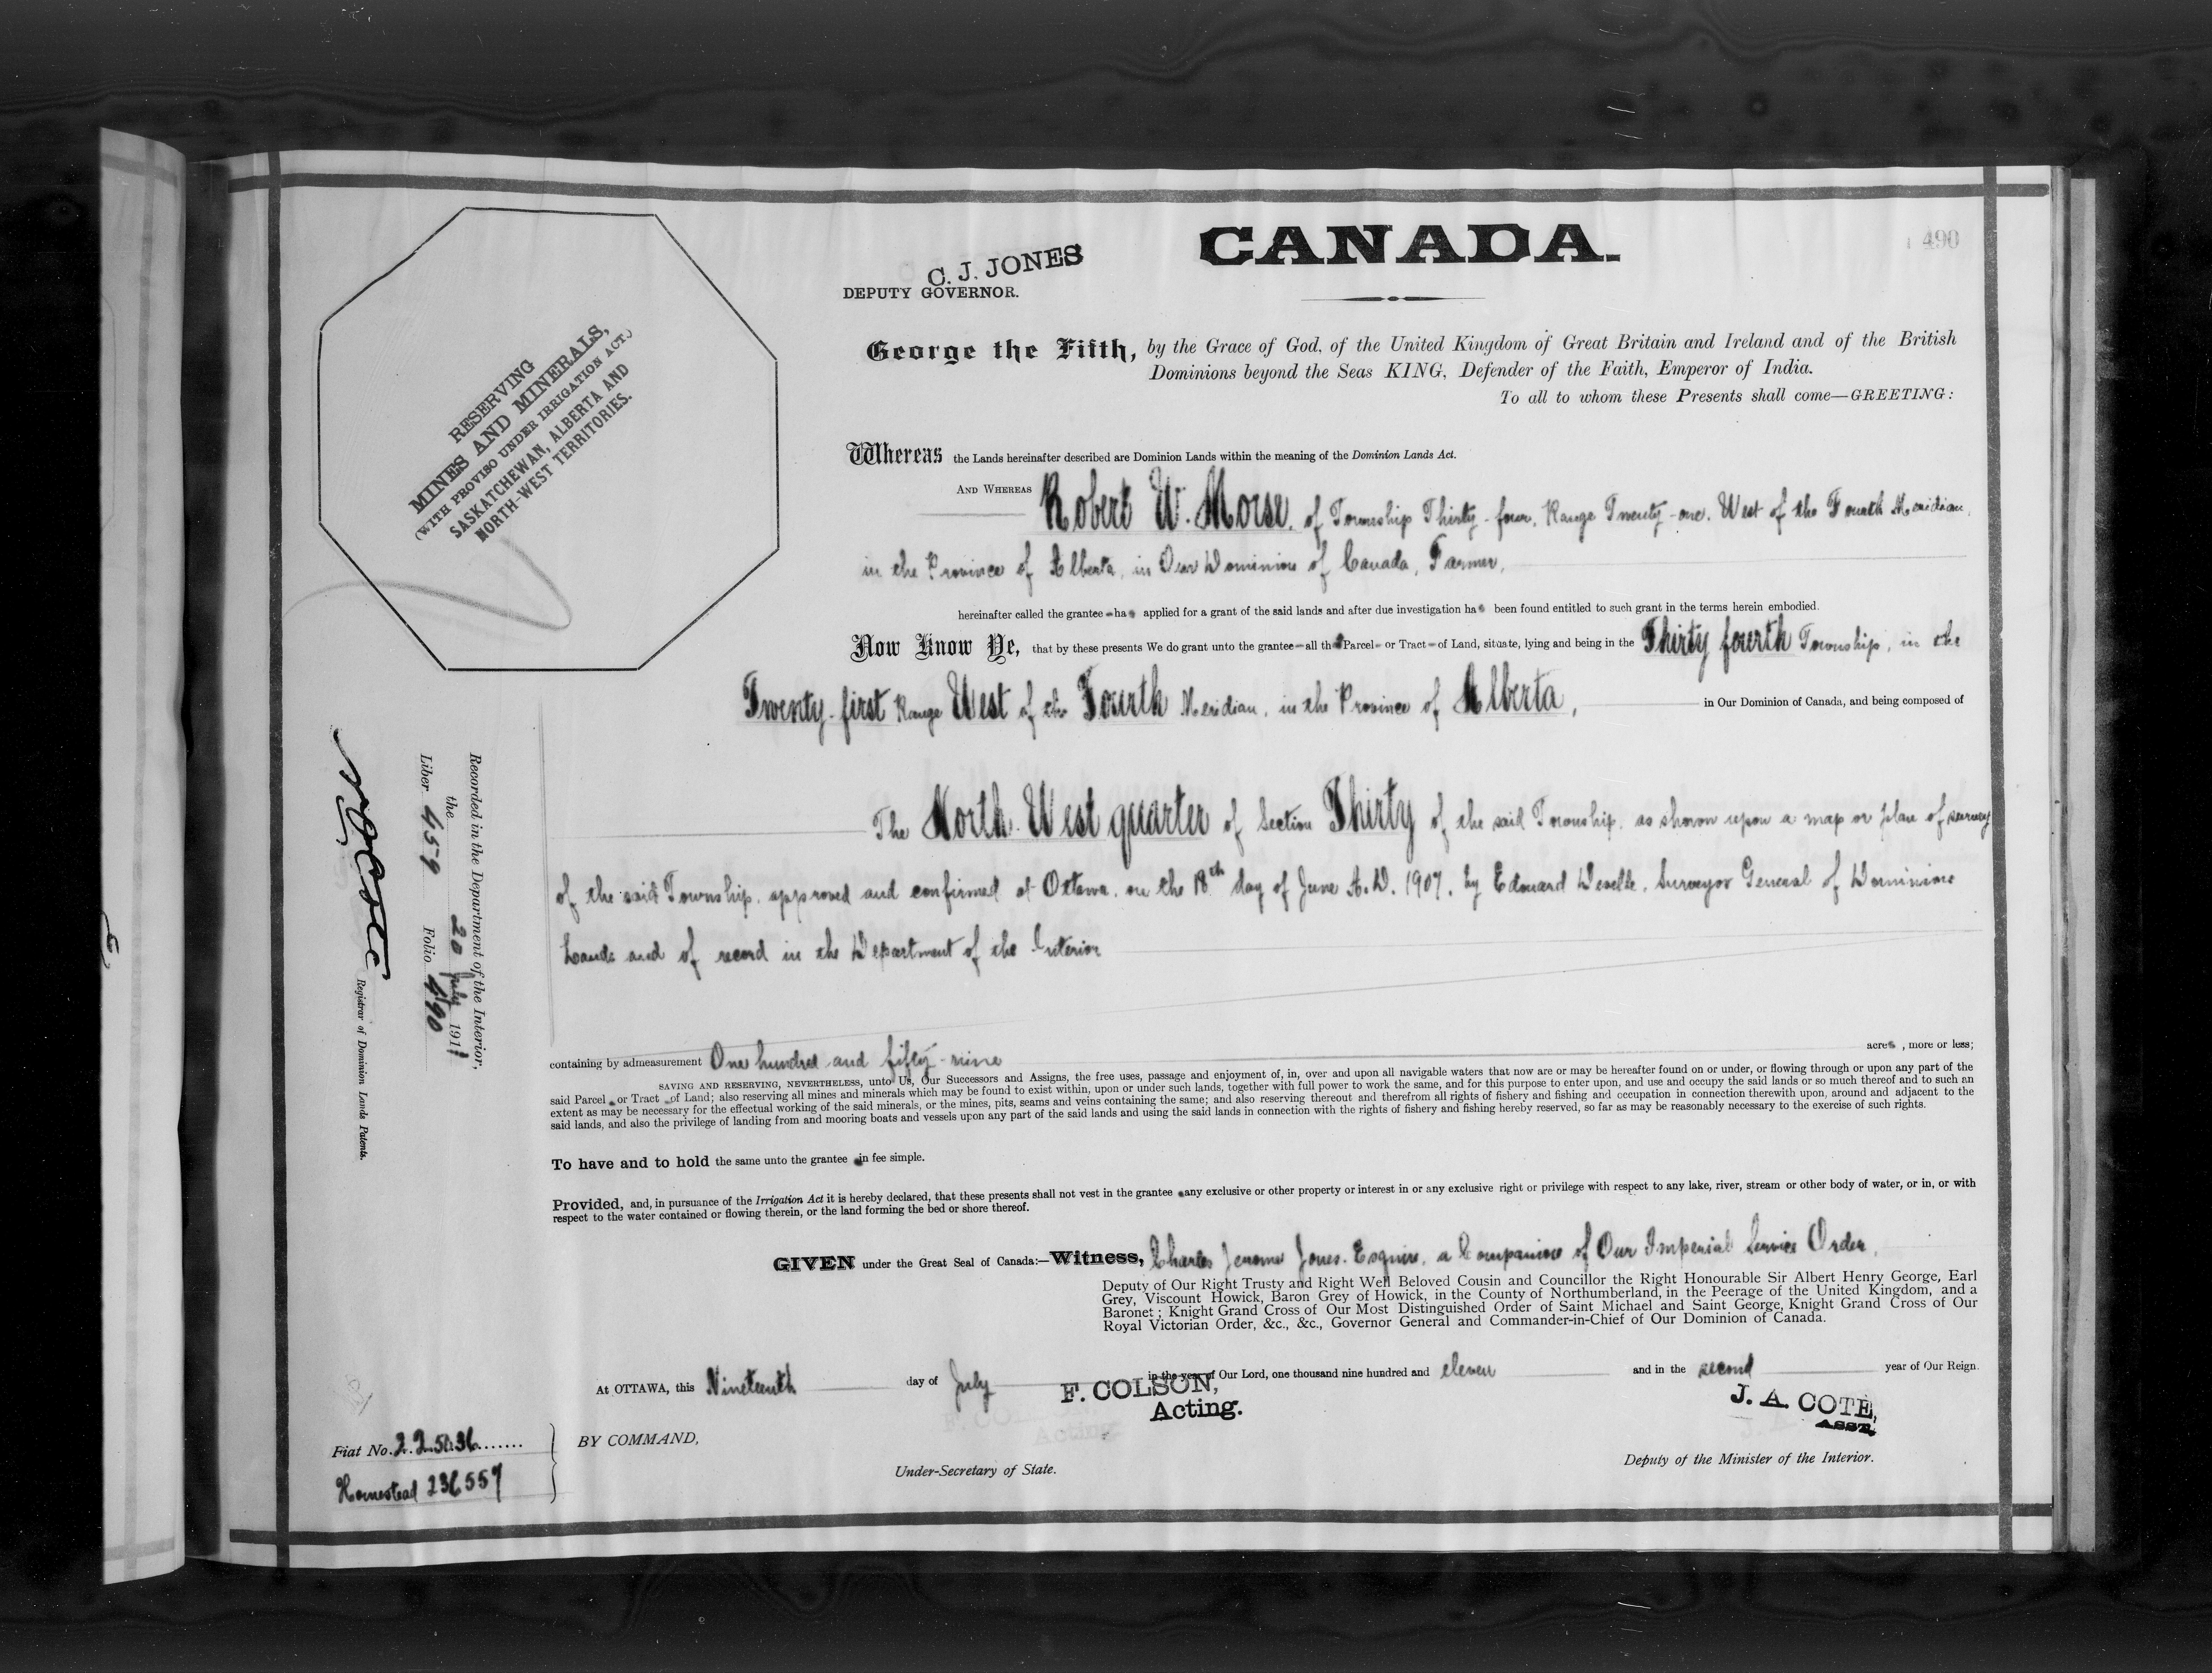 CANADA.
490
C. J. JONES
DEPUTY GOVERNOR.
George the Fifth, by the Grace of God, of the United Kingdom of Great Britain and Ireland and of the British
Dominions beyond the Seas KING, Defender of the Faith, Emperor of India.
To all to whom these Presents shall come—GREETING:
RESERVING
MINES AND MINERALS,
(WITH PROVISO UNDER IRRIGATION ACT.)
SASKATCHEWAN, ALBERTA AND
NORTH-WEST TERRITORIES.
Whereas the Lands hereinafter described are Dominion Lands within the meaning of the Dominion Lands Act.
AND WHEREAS Robert W. Morse, of Township Thirty-four, Range Twenty-one, West of the Fourth Meridian,
in the Province of Alberta, in Our Dominion of Canada, Farmer,
hereinafter called the grantee - has applied for a grant of the said lands and after due investigation has been found entitled to such grant in the terms herein embodied.
Now Know Ye, that by these presents We do grant unto the grantee - all that Parcel - or Tract - of Land, situate, lying and being in the Thirty fourth Township, in the
Twenty-first Range West of the Fourth Meridian, in the Province of Alberta, in Our Dominion of Canada, and being composed of
The North West quarter of Section Thirty of the said Township, as shown upon a map or plan of survey
of the said Township, approved and confirmed at Ottawa, on the 18th day of June A.D. 1907, by Edouard Deville, Surveyor General of Dominion
Lands and of record in the Department of the Interior
containing by admeasurement One hundred and fifty-nine acres, more or less;
SAVING AND RESERVING, NEVERTHELESS, unto Us, Our Successors and Assigns, the free uses, passage and enjoyment of, in, over and upon all navigable waters that now are or may be hereafter found on or under, or flowing through or upon any part of the
said Parcel or Tract of Land; also reserving all mines and minerals which may be found to exist within, upon or under such lands, together with full power to work the same, and for this purpose to enter upon, and use and occupy the said lands or so much thereof and to such an
extent as may be necessary for the effectual working of the said minerals, or the mines, pits, seams and veins containing the same; and also reserving thereout and therefrom all rights of fishery and fishing and occupation in connection therewith upon, around and adjacent to the
said lands, and also the privilege of landing from and mooring boats and vessels upon any part of the said lands and using the said lands in connection with the rights of fishery and fishing hereby reserved, so far as may be reasonably necessary to the exercise of such rights.
To have and to hold the same unto the grantee in fee simple.
Provided, and, in pursuance of the Irrigation Act it is hereby declared, that these presents shall not vest in the grantee any exclusive or other property or interest in or any exclusive right or privilege with respect to any lake, river, stream or other body of water, or in, or with
respect to the water contained or flowing therein, or the land forming the bed or shore thereof.
GIVEN under the Great Seal of Canada:—Witness, Charles Jerome Jones, Esquire, a Companion of Our Imperial Service Order,
Deputy of Our Right Trusty and Right Well Beloved Cousin and Councillor the Right Honourable Sir Albert Henry George, Earl
Grey, Viscount Howick, Baron Grey of Howick, in the County of Northumberland, in the Peerage of the United Kingdom, and a
Baronet; Knight Grand Cross of Our Most Distinguished Order of Saint Michael and Saint George, Knight Grand Cross of Our
Royal Victorian Order, &c., &c., Governor General and Commander-in-Chief of Our Dominion of Canada.
At OTTAWA, this Nineteenth day of July in the year of Our Lord, one thousand nine hundred and eleven and in the second year of Our Reign.
F. COLSON,
Acting.
J. A. COTE,
ASST.
BY COMMAND,
Under-Secretary of State.
Deputy of the Minister of the Interior.
Fiat No. 225036
Homestead 236557
Recorded in the Department of the Interior,
the 20 July 1911
Liber 459 Folio 490
Registrar of Dominion Lands Patents.